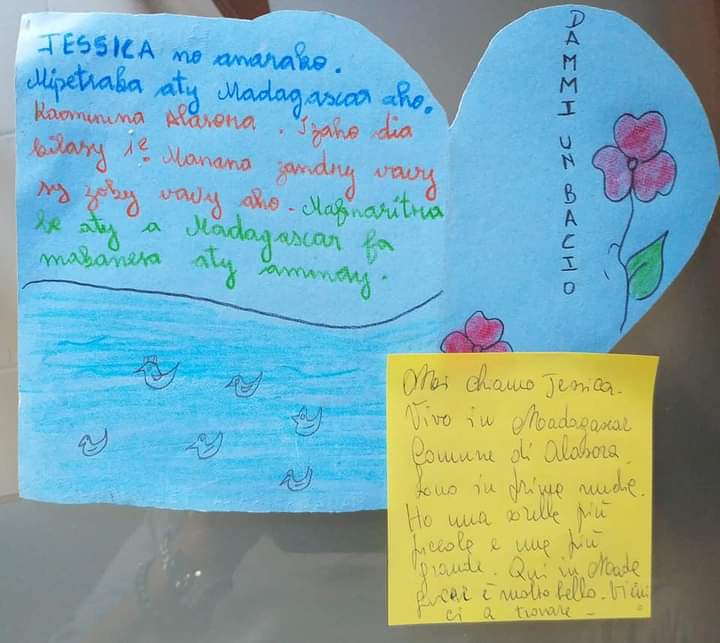 JESSICA no anarako.
Mipetraka aty Madagascar aho.
Kaominina Alasora. Izaho dia
kilasy 1e. Manana zandry vavy
sy zoky vavy aho. Mahnaritria
be aty a Madagascar fa
mahanesa aty aminay.
DAMMI UN BACIO
Moi chiamo Jessica.
Vivo in Madagascar
Comune di Alasora
Sono in prima media.
Ho una sorella più
piccola e una più
grande. Qui in Mada
gascar è molto bello. Vieni
ci a trovare -